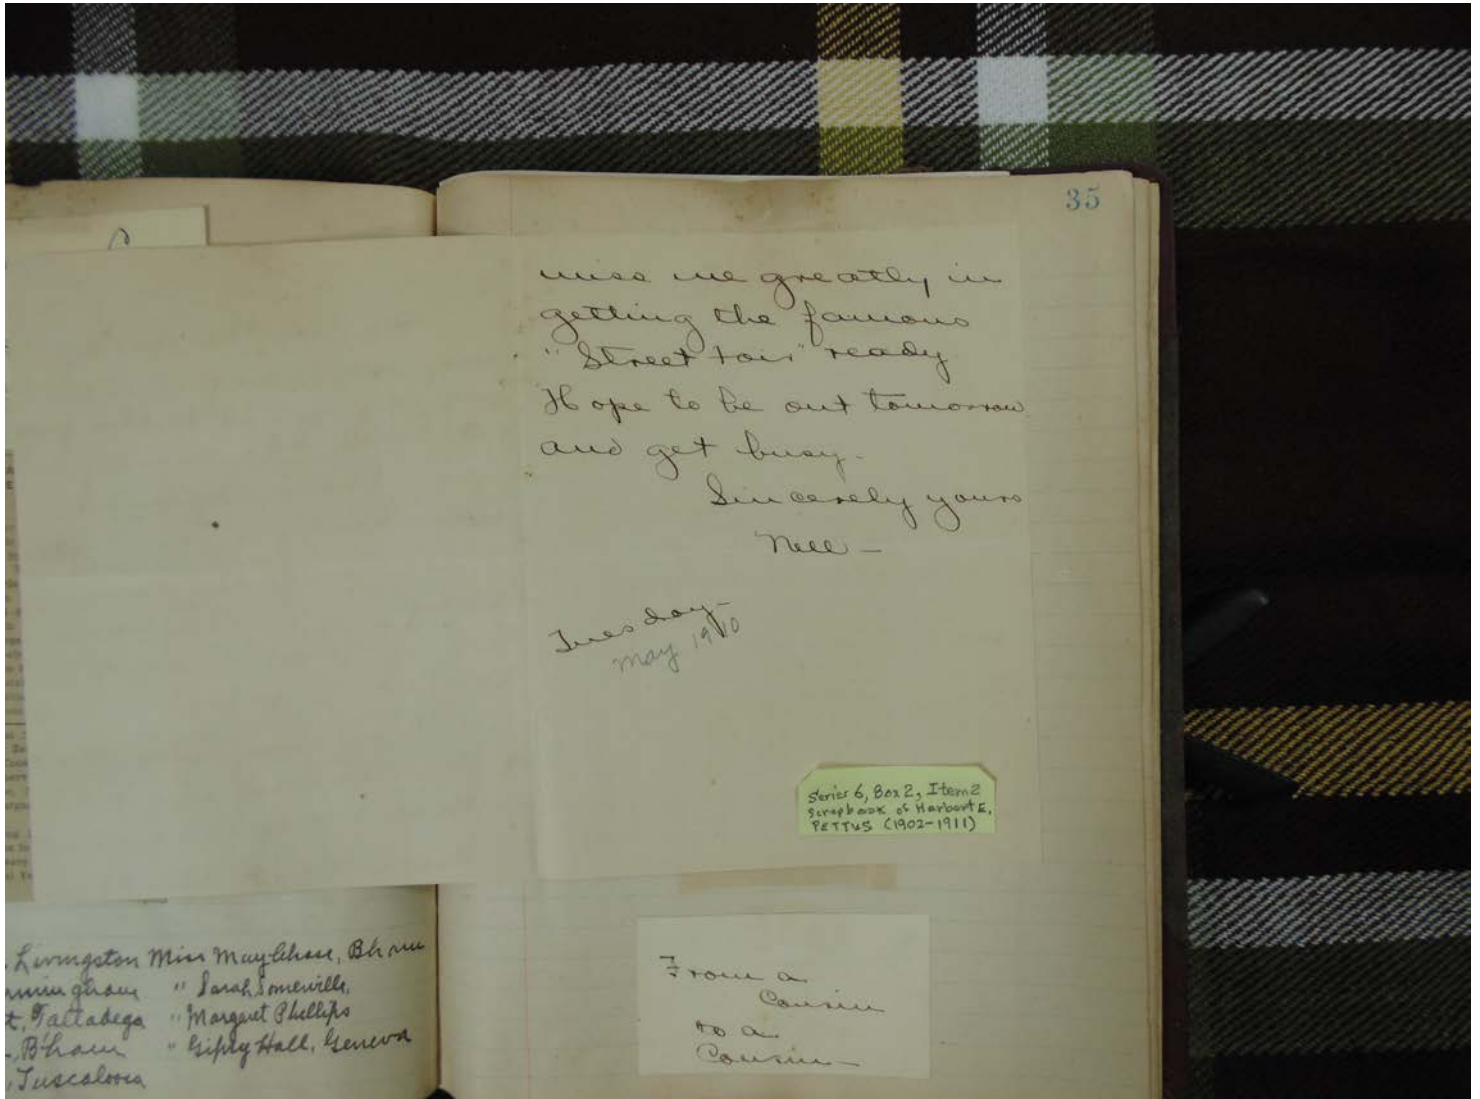 35
miss me greatly in
getting the famous
"Street Fair" ready
Hope to be out tomorrow
and get busy.
Sincerely yours
Nell —
Tuesday—
May 1910
Series 6, Box 2, Item 2
Scrapbook of Harbert E.
PETTUS (1902-1911)
. Livingston Miss May Chase, Bham
" Sarah Somerville,
t, Talladega " Margaret Phillips
., Bham " Gipsy Hall, Geneva
, Tuscaloosa
From a
Cousin
to a
Cousin—